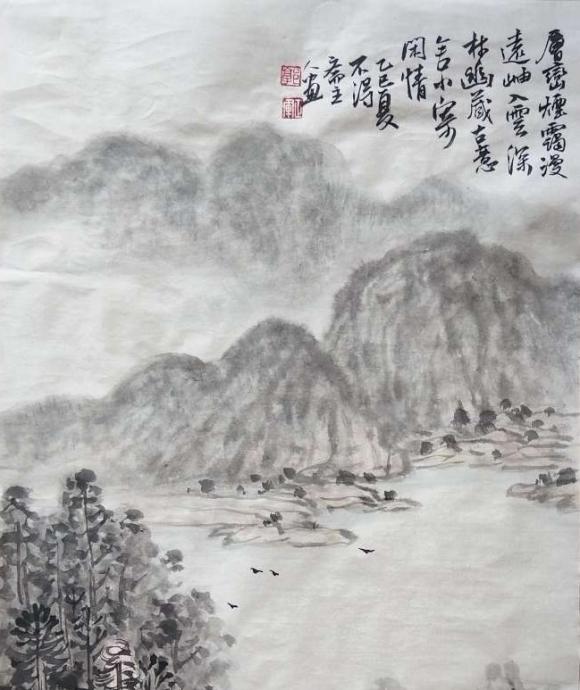 層巒煙靄漫
遠岫入雲深
林幽藏古意
舍小寄
閑情
乙巳夏
不得
齋主
人画